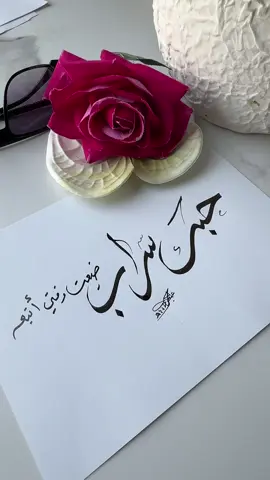 حبك سراب
ضيعت وقتي أتبعه